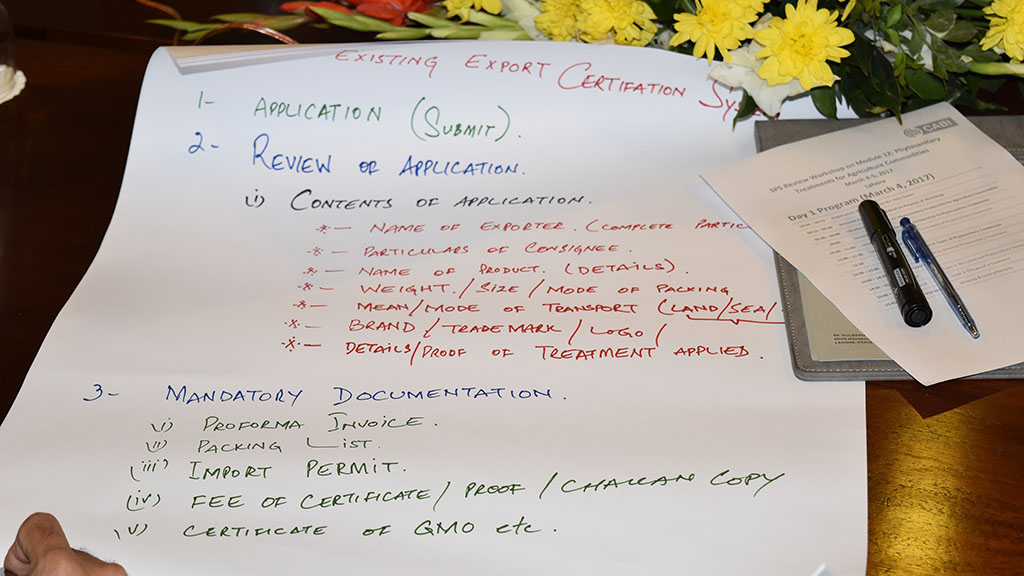 EXISTING EXPORT CERTIFATION
1- APPLICATION (SUBMIT).
2- REVIEW OF APPLICATION.
i) CONTENTS OF APPLICATION.
* - NAME OF EXPORTER. (COMPLETE PARTIC
* - PARTICULARS OF CONSIGNEE.
* - NAME OF PRODUCT. (DETAILS).
* - WEIGHT. / SIZE / MODE OF PACKING
* - MEAN/MODE OF TRANSPORT (LAND/SEA/
* - BRAND / TRADEMARK / LOGO /
* - DETAILS/PROOF OF TREATMENT APPLIED.
3- MANDATORY DOCUMENTATION.
i) PROFORMA INVOICE.
ii) PACKING LIST.
(iii) IMPORT PERMIT.
(iv) FEE OF CERTIFICATE / PROOF / CHALLAN COPY
(v) CERTIFICATE OF GMO etc.
CABI
SPS Review Workshop on Module 12: Phytosanitary
Treatments for Agriculture Commodities
March 4-5, 2017
Lahore
Day 1 Program (March 4, 2017)